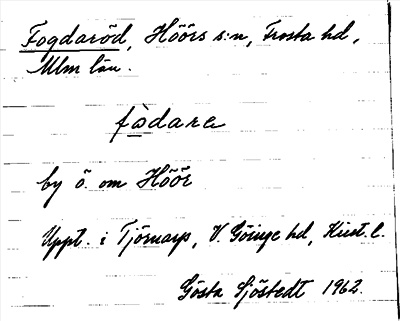 Fogdaröd, Höörs s:n, Frosta hd,
Mlm län.
fòdare
by ö. om Höör
Uppt. i Tjörnarp, V. Göinge hd, Krist. l.
Gösta Sjöstedt 1962.